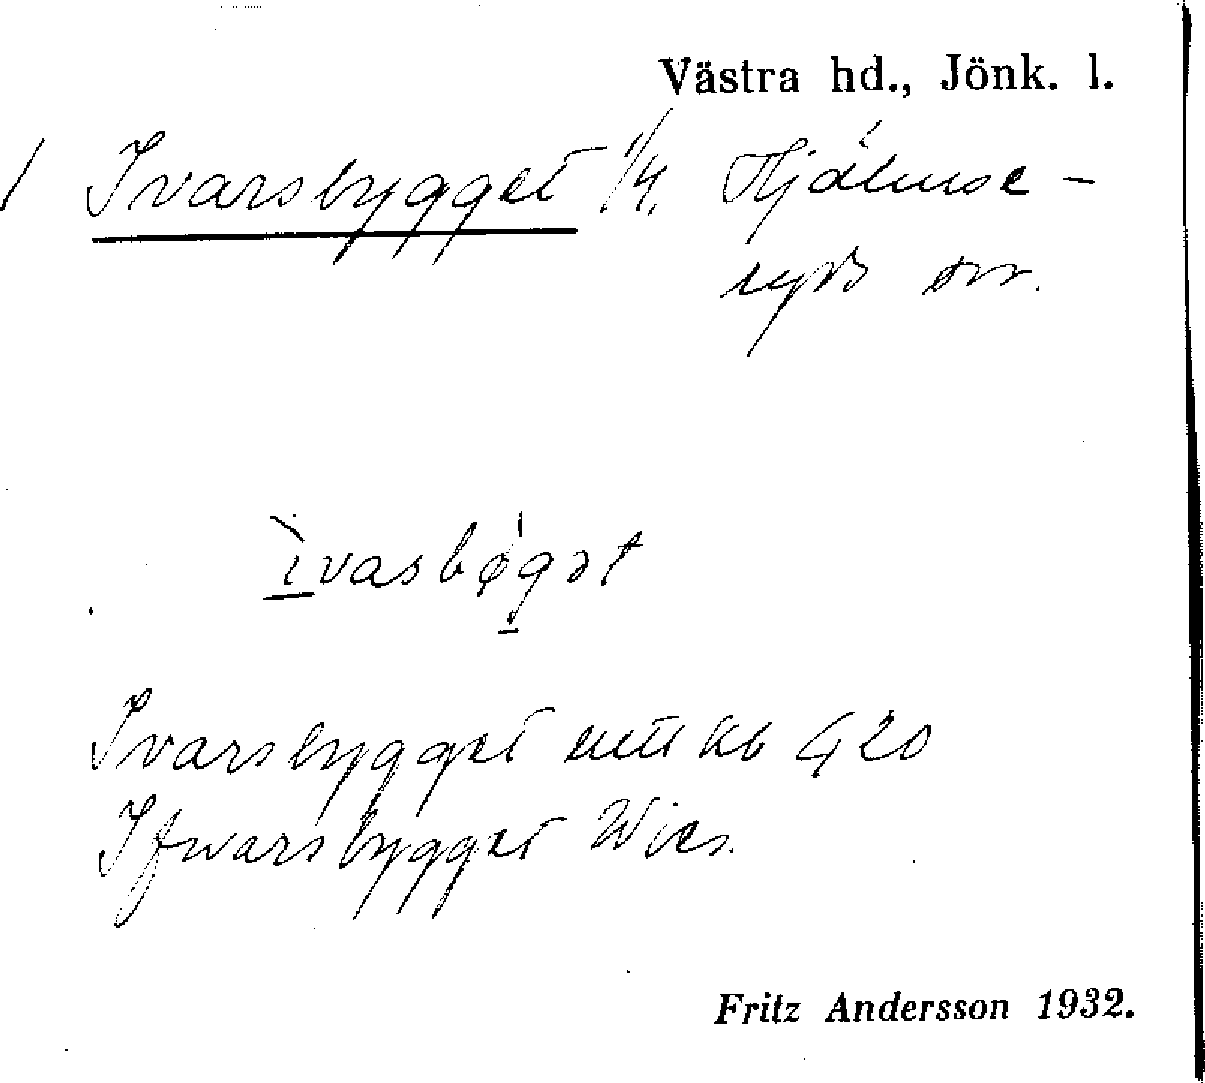 Västra hd., Jönk. l.
/ Ivarsbygget 1/4. Hjälmse-
ryds sn.
ìvasbǿgət
Ivarsbygget enl kb G 20
Ifwarsbygget Wies.
Fritz Andersson 1932.